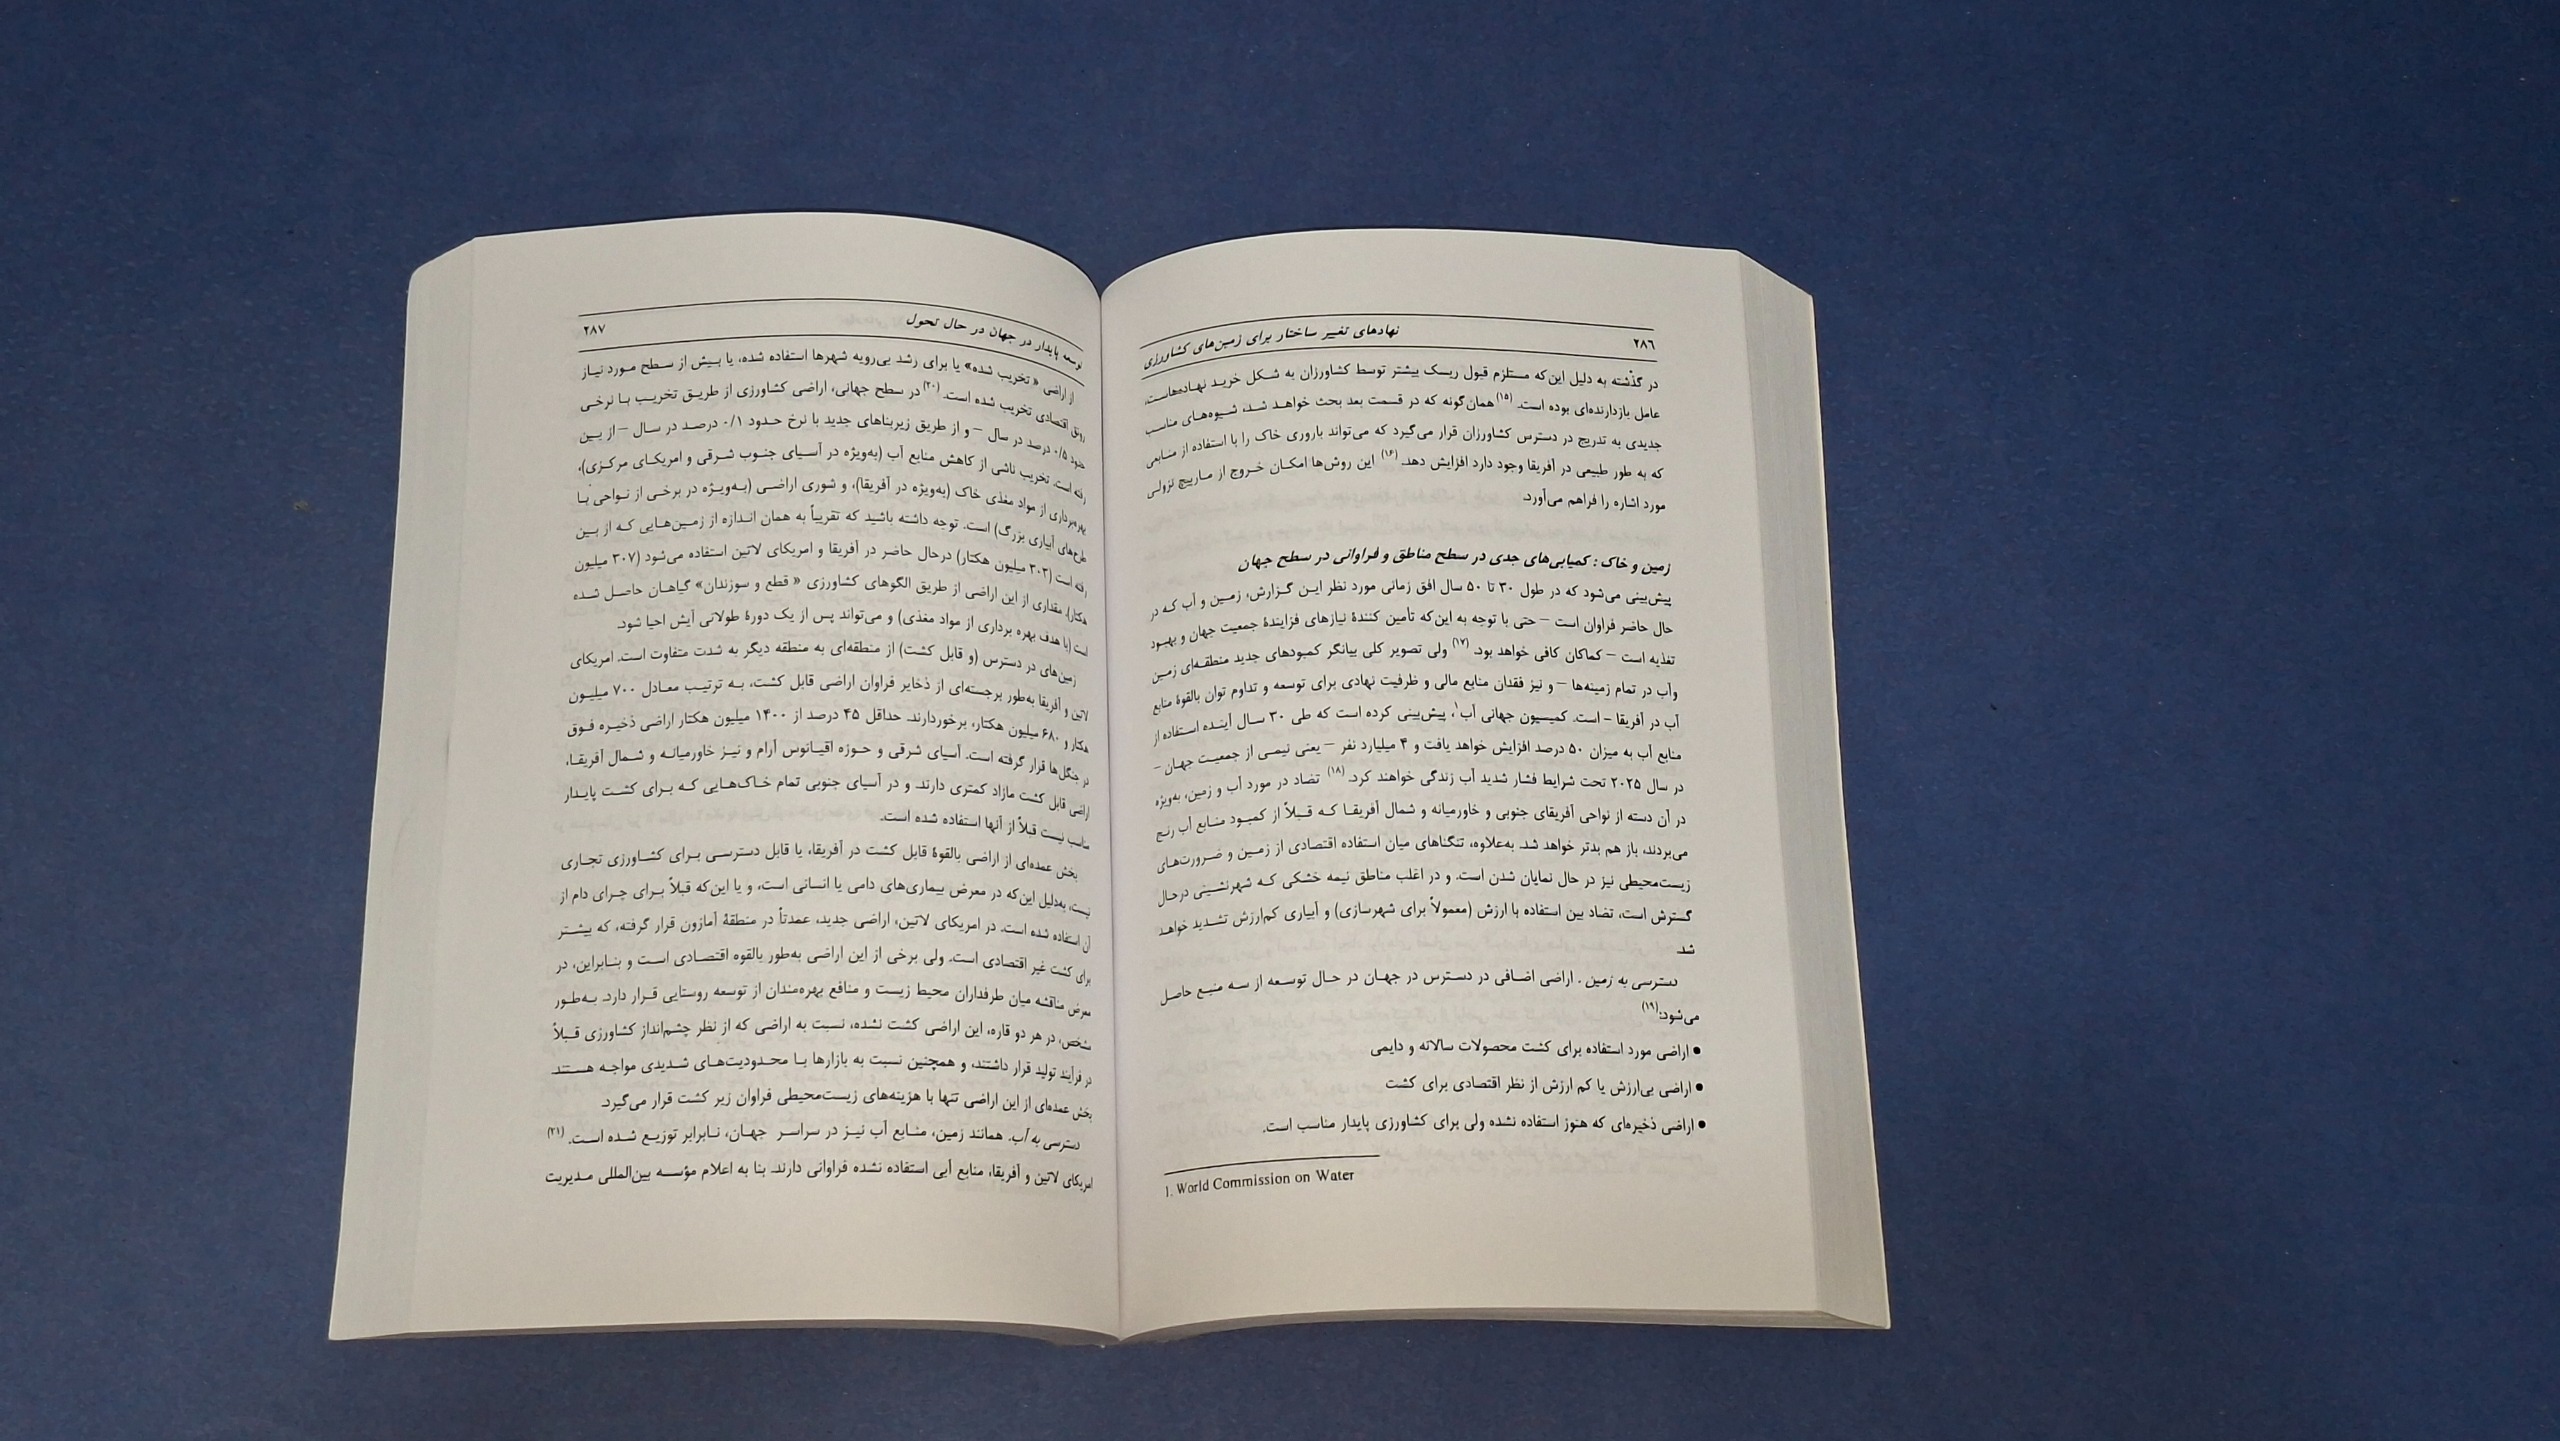 ۲۸۶
نهادهای تغییر ساختار برای زمین‌های کشاورزی
در گذشته به دلیل این‌که مستلزم قبول ریسک بیشتر توسط کشاورزان به شکل خرید نهاده‌هاست،
عامل بازدارنده‌ای بوده است. (۱۵) همان‌گونه که در قسمت بعد بحث خواهد شد، شیوه‌های مناسب
جدیدی به تدریج در دسترس کشاورزان قرار می‌گیرد که می‌تواند باروری خاک را با استفاده از منابعی
که به طور طبیعی در آفریقا وجود دارد افزایش دهد. (۱۶) این روش‌ها امکان خروج از مارپیچ نزولی
مورد اشاره را فراهم می‌آورد.
زمین و خاک : کمیابی‌های جدی در سطح مناطق و فراوانی در سطح جهان
پیش‌بینی می‌شود که در طول ۳۰ تا ۵۰ سال افق زمانی مورد نظر این گزارش، زمین و آب که در
حال حاضر فراوان است – حتی با توجه به این‌که تأمین کنندهٔ نیازهای فزایندهٔ جمعیت جهان و بهبود
تغذیه است – کماکان کافی خواهد بود. (۱۷) ولی تصویر کلی بیانگر کمبودهای جدید منطقه‌ای زمین
وآب در تمام زمینه‌ها – و نیز فقدان منابع مالی و ظرفیت نهادی برای توسعه و تداوم توان بالقوهٔ منابع
آب در آفریقا – است. کمیسیون جهانی آب۱، پیش‌بینی کرده است که طی ۳۰ سال آینده استفاده از
منابع آب به میزان ۵۰ درصد افزایش خواهد یافت و ۴ میلیارد نفر – یعنی نیمی از جمعیت جهان –
در سال ۲۰۲۵ تحت شرایط فشار شدید آب زندگی خواهند کرد. (۱۸) تضاد در مورد آب و زمین، به‌ویژه
در آن دسته از نواحی آفریقای جنوبی و خاورمیانه و شمال آفریقا که قبلاً از کمبود منابع آب رنج
می‌بردند، باز هم بدتر خواهد شد. به‌علاوه، تنگناهای میان استفاده اقتصادی از زمین و ضرورت‌های
زیست‌محیطی نیز در حال نمایان شدن است. و در اغلب مناطق نیمه خشکی که شهرنشینی درحال
گسترش است، تضاد بین استفاده با ارزش (معمولاً برای شهرسازی) و آبیاری کم‌ارزش تشدید خواهد
شد.
دسترسی به زمین . اراضی اضافی در دسترس در جهان در حال توسعه از سه منبع حاصل
می‌شود: (۱۹)
● اراضی مورد استفاده برای کشت محصولات سالانه و دایمی
● اراضی بی‌ارزش یا کم ارزش از نظر اقتصادی برای کشت
● اراضی ذخیره‌ای که هنوز استفاده نشده ولی برای کشاورزی پایدار مناسب است.
1. World Commission on Water
توسعه پایدار در جهان در حال تحول
۲۸۷
از اراضی « تخریب شده» یا برای رشد بی‌رویه شهرها استفاده شده، یا بیش از سطح مورد نیاز
رونق اقتصادی تخریب شده است. (۲۰) در سطح جهانی، اراضی کشاورزی از طریق تخریب با نرخی
حدود ۰/۵ درصد در سال – و از طریق زیربناهای جدید با نرخ حدود ۰/۱ درصد در سال – از بین
رفته است. تخریب ناشی از کاهش منابع آب (به‌ویژه در آسیای جنوب شرقی و امریکای مرکزی)،
بهره‌برداری از مواد مغذی خاک (به‌ویژه در آفریقا)، و شوری اراضی (به‌ویژه در برخی از نواحی با
طرح‌های آبیاری بزرگ) است. توجه داشته باشید که تقریباً به همان اندازه از زمین‌هایی که از بین
رفته است (۳۰۲ میلیون هکتار) درحال حاضر در آفریقا و امریکای لاتین استفاده می‌شود (۳۰۷ میلیون
هکتار). مقداری از این اراضی از طریق الگوهای کشاورزی « قطع و سوزندان» گیاهان حاصل شده
است (با هدف بهره برداری از مواد مغذی) و می‌تواند پس از یک دورهٔ طولانی آیش احیا شود.
زمین‌های در دسترس (و قابل کشت) از منطقه‌ای به منطقه دیگر به شدت متفاوت است. امریکای
لاتین و آفریقا به‌طور برجسته‌ای از ذخایر فراوان اراضی قابل کشت، به ترتیب معادل ۷۰۰ میلیون
هکتار و ۶۸۰ میلیون هکتار، برخوردارند. حداقل ۴۵ درصد از ۱۴۰۰ میلیون هکتار اراضی ذخیره فوق
در جنگل‌ها قرار گرفته است. آسیای شرقی و حوزه اقیانوس آرام و نیز خاورمیانه و شمال آفریقا،
اراضی قابل کشت مازاد کمتری دارند. و در آسیای جنوبی تمام خاک‌هایی که برای کشت پایدار
مناسب نیست قبلاً از آنها استفاده شده است.
بخش عمده‌ای از اراضی بالقوهٔ قابل کشت در آفریقا، یا قابل دسترسی برای کشاورزی تجاری
نیست، به‌دلیل این‌که در معرض بیماری‌های دامی یا انسانی است، و یا این‌که قبلاً برای چرای دام از
آن استفاده شده است. در امریکای لاتین، اراضی جدید، عمدتاً در منطقهٔ آمازون قرار گرفته، که بیشتر
برای کشت غیر اقتصادی است. ولی برخی از این اراضی به‌طور بالقوه اقتصادی است و بنابراین، در
معرض مناقشه میان طرفداران محیط زیست و منافع بهره‌مندان از توسعه روستایی قرار دارد. به‌طور
مشخص، در هر دو قاره، این اراضی کشت نشده، نسبت به اراضی که از نظر چشم‌انداز کشاورزی قبلاً
در فرآیند تولید قرار داشتند، و همچنین نسبت به بازارها با محدودیت‌های شدیدی مواجه هستند.
بخش عمده‌ای از این اراضی تنها با هزینه‌های زیست‌محیطی فراوان زیر کشت قرار می‌گیرد.
دسترسی به آب. همانند زمین، منابع آب نیز در سراسر جهان، نابرابر توزیع شده است. (۲۱)
امریکای لاتین و آفریقا، منابع آبی استفاده نشده فراوانی دارند. بنا به اعلام مؤسسه بین‌المللی مدیریت